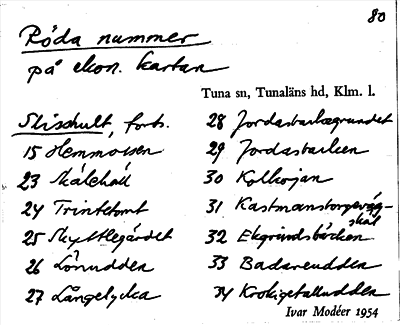 80
Röda nummer
på ekon. kartan
Tuna sn, Tunaläns hd, Klm. l.
Slisshult, forts.
15 Hemmossen
23 Skålehall
24 Trintetomt
25 Skyttlegärdet
26 Lönudden
27 Långelycka
28 Jordastubbegrundet
29 Jordastubben
30 Kolkojan
31 Kastmanstorpevägskäl
32 Ekgrundsbäcken
33 Badareudden
34 Krokigetalludden
Ivar Modéer 1954